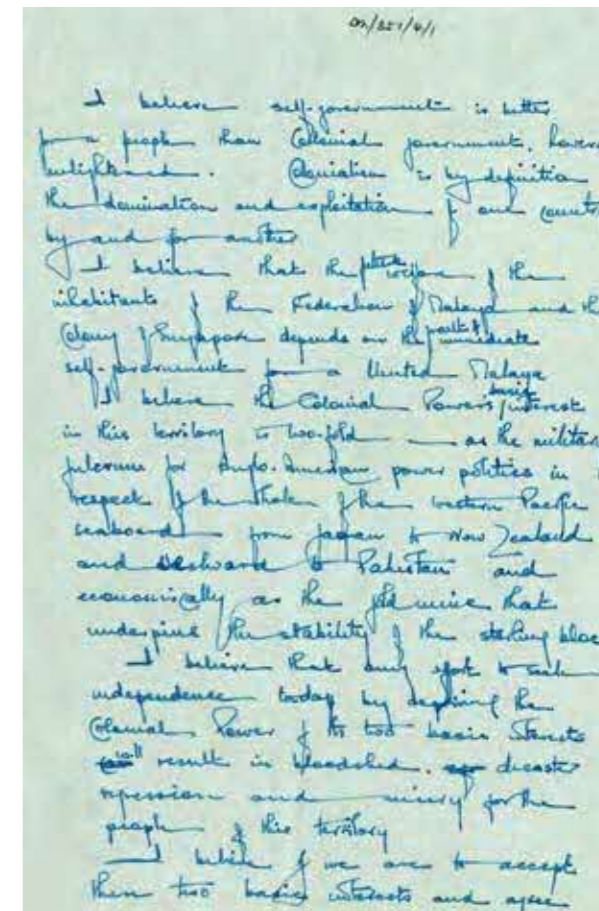 I believe self-government is better
for a people than Colonial government, howev
enlightened. Colonialism is by definition
the domination and exploitation of one countr
by and for another
I believe that the future welfare of the
inhabitants of the Federation of Malaya and th
Colony of Singapore depends on the grant of immediate
self-government for a United Malaya
I believe the Colonial Power's basic interest
in this territory is two-fold — as the militar
fulcrum for Anglo-American power politics in
respect of the whole of the western Pacific
seaboard from Japan to New Zealand
and westward to Pakistan and
economically as the gold mine that
underpins the stability of the sterling bloc
I believe that any effort to seek
independence today by depriving the
Colonial Power of its two basic interests
will result in bloodshed, disaster
repression and misery for the
people of this territory
I believe if we are to accept
these two basic interests and agree